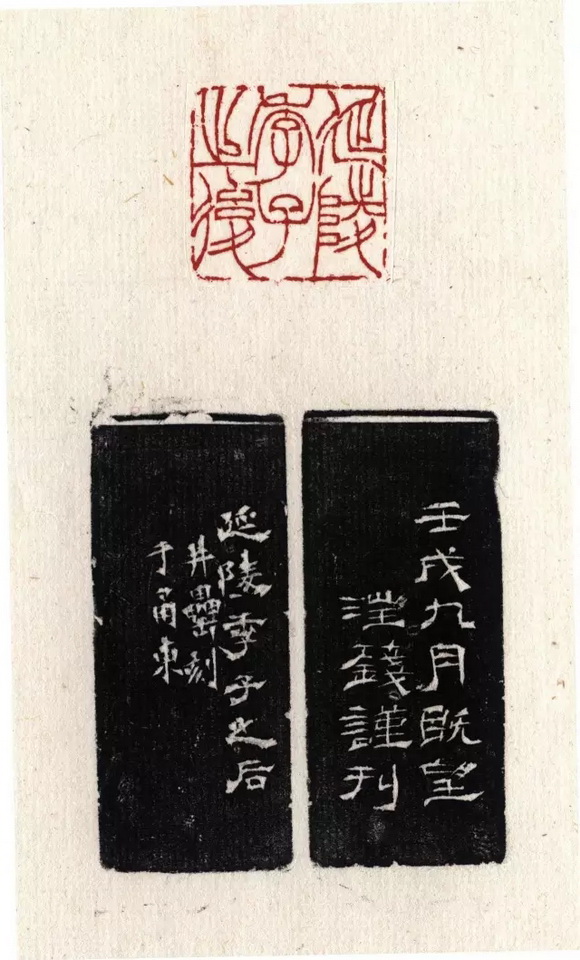 延陵
季子
之後
壬戌九月既望
謹刊
延陵季子之后
井罍刻
于甬東